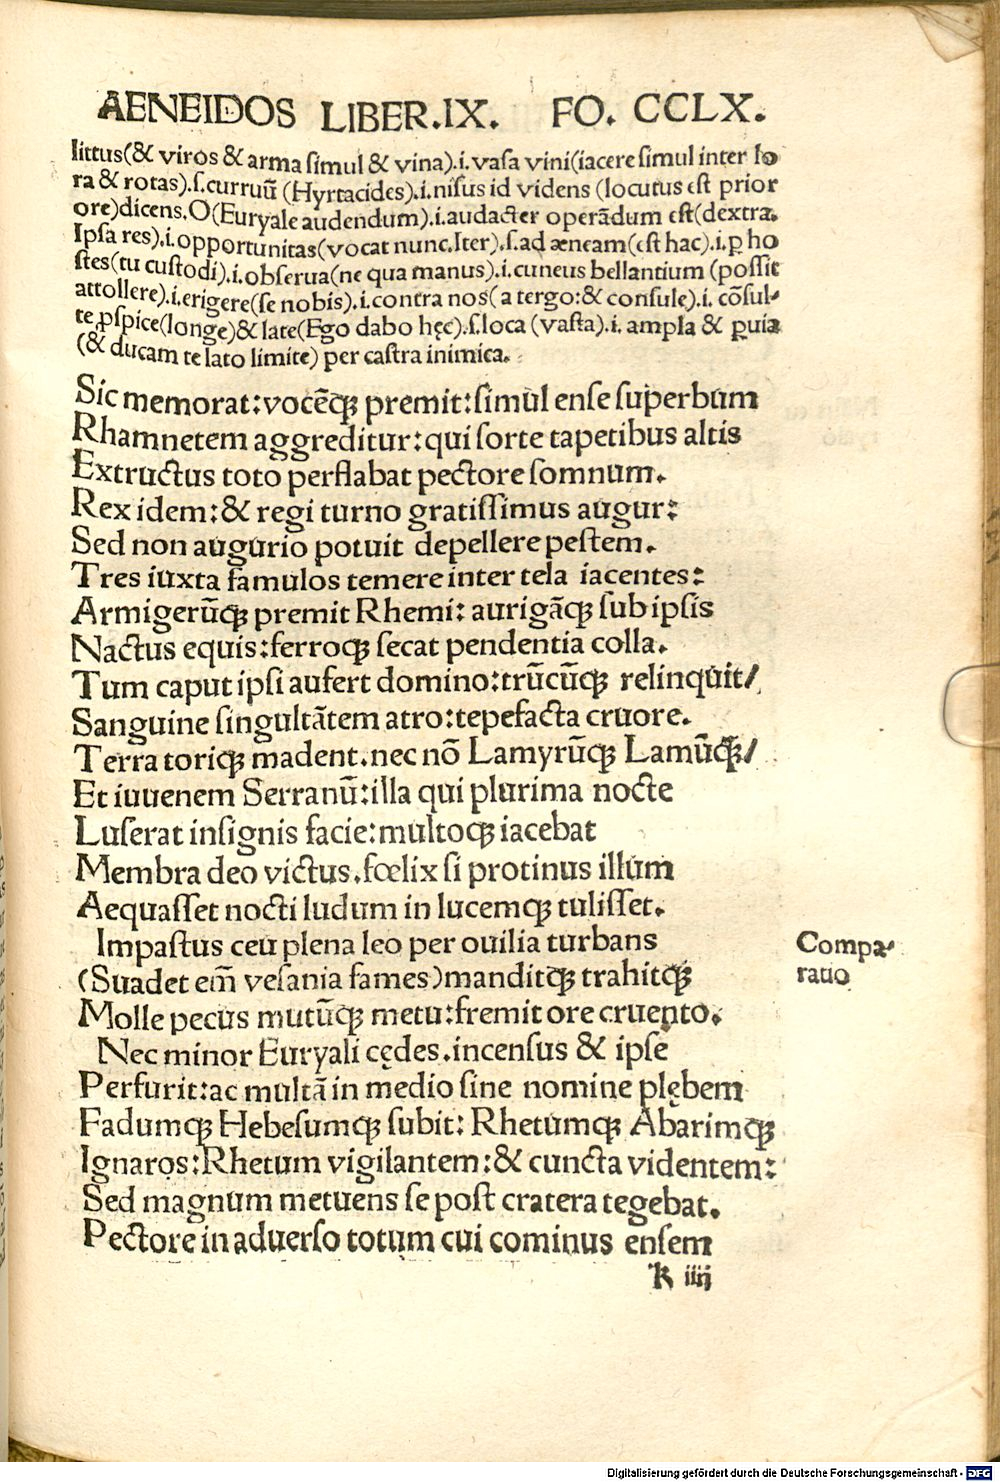 AENEIDOS LIBER.IX. FO. CCLX.
littus(& viros & arma simul & vina).i.vasa vini(iacere simul inter lo
ra & rotas).s.curruū (Hyrtacides).i.nisus id videns (locutus est prior
ore)dicens.O(Euryale audendum).i.audacter operādum est(dextra.
Ipsa res).i.opportunitas(vocat nunc.Iter).s.ad æneam(est hac).i.ꝑ ho
stes(tu custodi).i.obserua(ne qua manus).i.cuneus bellantium (possit
attollere).i.erigere(se nobis).i.contra nos(a tergo:& consule).i. cōsul-
te ꝑspice(longe)& late(Ego dabo hęc).s.loca (vasta).i. ampla & ꝑuia
(& ducam te lato limite) per castra inimica.
Sic memorat:vocēqꝫ premit:simul ense superbum
Rhamnetem aggreditur:qui forte tapetibus altis
Extructus toto perflabat pectore somnum.
Rex idem:& regi turno gratissimus augur:
Sed non augurio potuit depellere pestem.
Tres iuxta famulos temere inter tela iacentes:
Armigerūqꝫ premit Rhemi: aurigāqꝫ sub ipsis
Nactus equis:ferroqꝫ secat pendentia colla.
Tum caput ipsi aufert domino:trūcūqꝫ relinquit/
Sanguine singultātem atro:tepefacta cruore.
Terra toriqꝫ madent.nec nō Lamyrūqꝫ Lamūqꝫ/
Et iuuenem Serranū:illa qui plurima nocte
Luserat insignis facie:multoqꝫ iacebat
Membra deo victus.fœlix si protinus illum
Aequasset nocti ludum in lucemqꝫ tulisset.
Impastus ceu plena leo per ouilia turbans
(Suadet em̄ vesania fames)manditqꝫ trahitqꝫ
Compa-
ratio
Molle pecus mutūqꝫ metu:fremit ore cruento.
Nec minor Euryali cędes.incensus & ipse
Perfurit:ac multā in medio sine nomine plębem
Fadumqꝫ Hebesumqꝫ subit: Rhetumqꝫ Abarimqꝫ
Ignaros:Rhetum vigilantem:& cuncta videntem:
Sed magnum metuens se post cratera tegebat.
Pectore in aduerso totum cui cominus ensem
k iiij
Digitalisierung gefördert durch die Deutsche Forschungsgemeinschaft - DFG